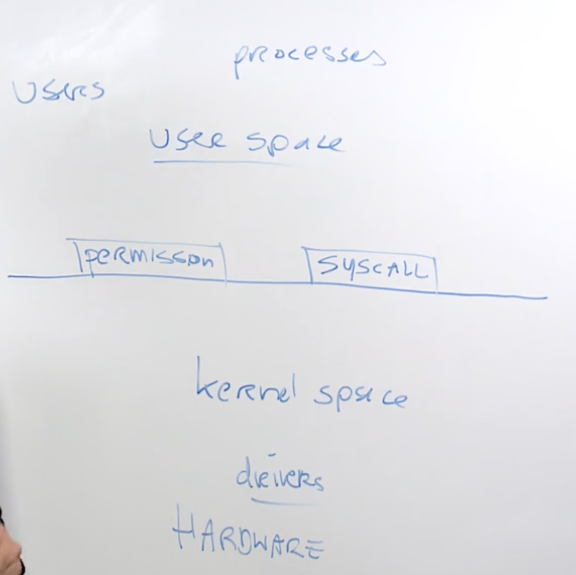 processes
Users
User space
permission SYSCALL
kernel space
drivers
HARDWARE